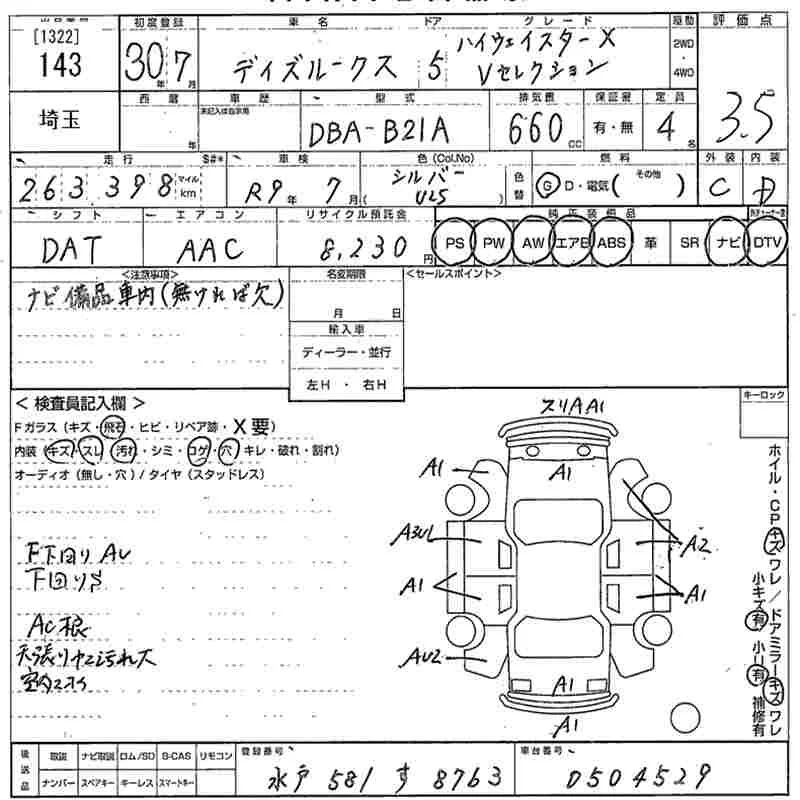 [1322]
143
初度登録
30年7月
車名
ドア
グレード
デイズルークス
5
ハイウェイスターX
Vセレクション
駆動
2WD
・
4WD
評価点
3.5
埼玉
西暦
年
車歴
未記入は自家用
型式
DBA-B21A
排気量
660cc
保証書
有・無
定員
4名
走行
263,398
マイル
km
S#*
車検
R9年7月
色(Col.No)
シルバー
(
)
色替
燃料
G D・電気( その他 )
外装
C
内装
D
シフト
DAT
エアコン
AAC
リサイクル預託金
8,230円
純正装備品
PS PW AW エアB ABS 革 SR ナビ DTV
<注意事項>
ナビ備品車内(無ければ欠)
名変期限
月 日
輸入車
ディーラー・並行
左H ・ 右H
<セールスポイント>
<検査員記入欄>
Fガラス(キズ・飛石・ヒビ・リペア跡・X要)
内装(キズ・スレ・汚れ・シミ・コゲ・穴・キレ・破れ・割れ)
オーディオ(無し・穴)/タイヤ(スタッドレス)
F下回りAU
下回りS
AC根
天張りヤニ汚れ大
キーロック
スリAA1
A1
A1
A3U1
A2
A1
A1
AU2
A1
A1
ホイル・CPキズワレ/ドアミラーキズワレ
小キズ有、小U有、補修有
後送品
取説 ナビ取説 ロム/SD B-CAS リモコン
ナンバー スペアキー キーレス スマートキー
登録番号
水戸 581 す 8763
車台番号
0504529